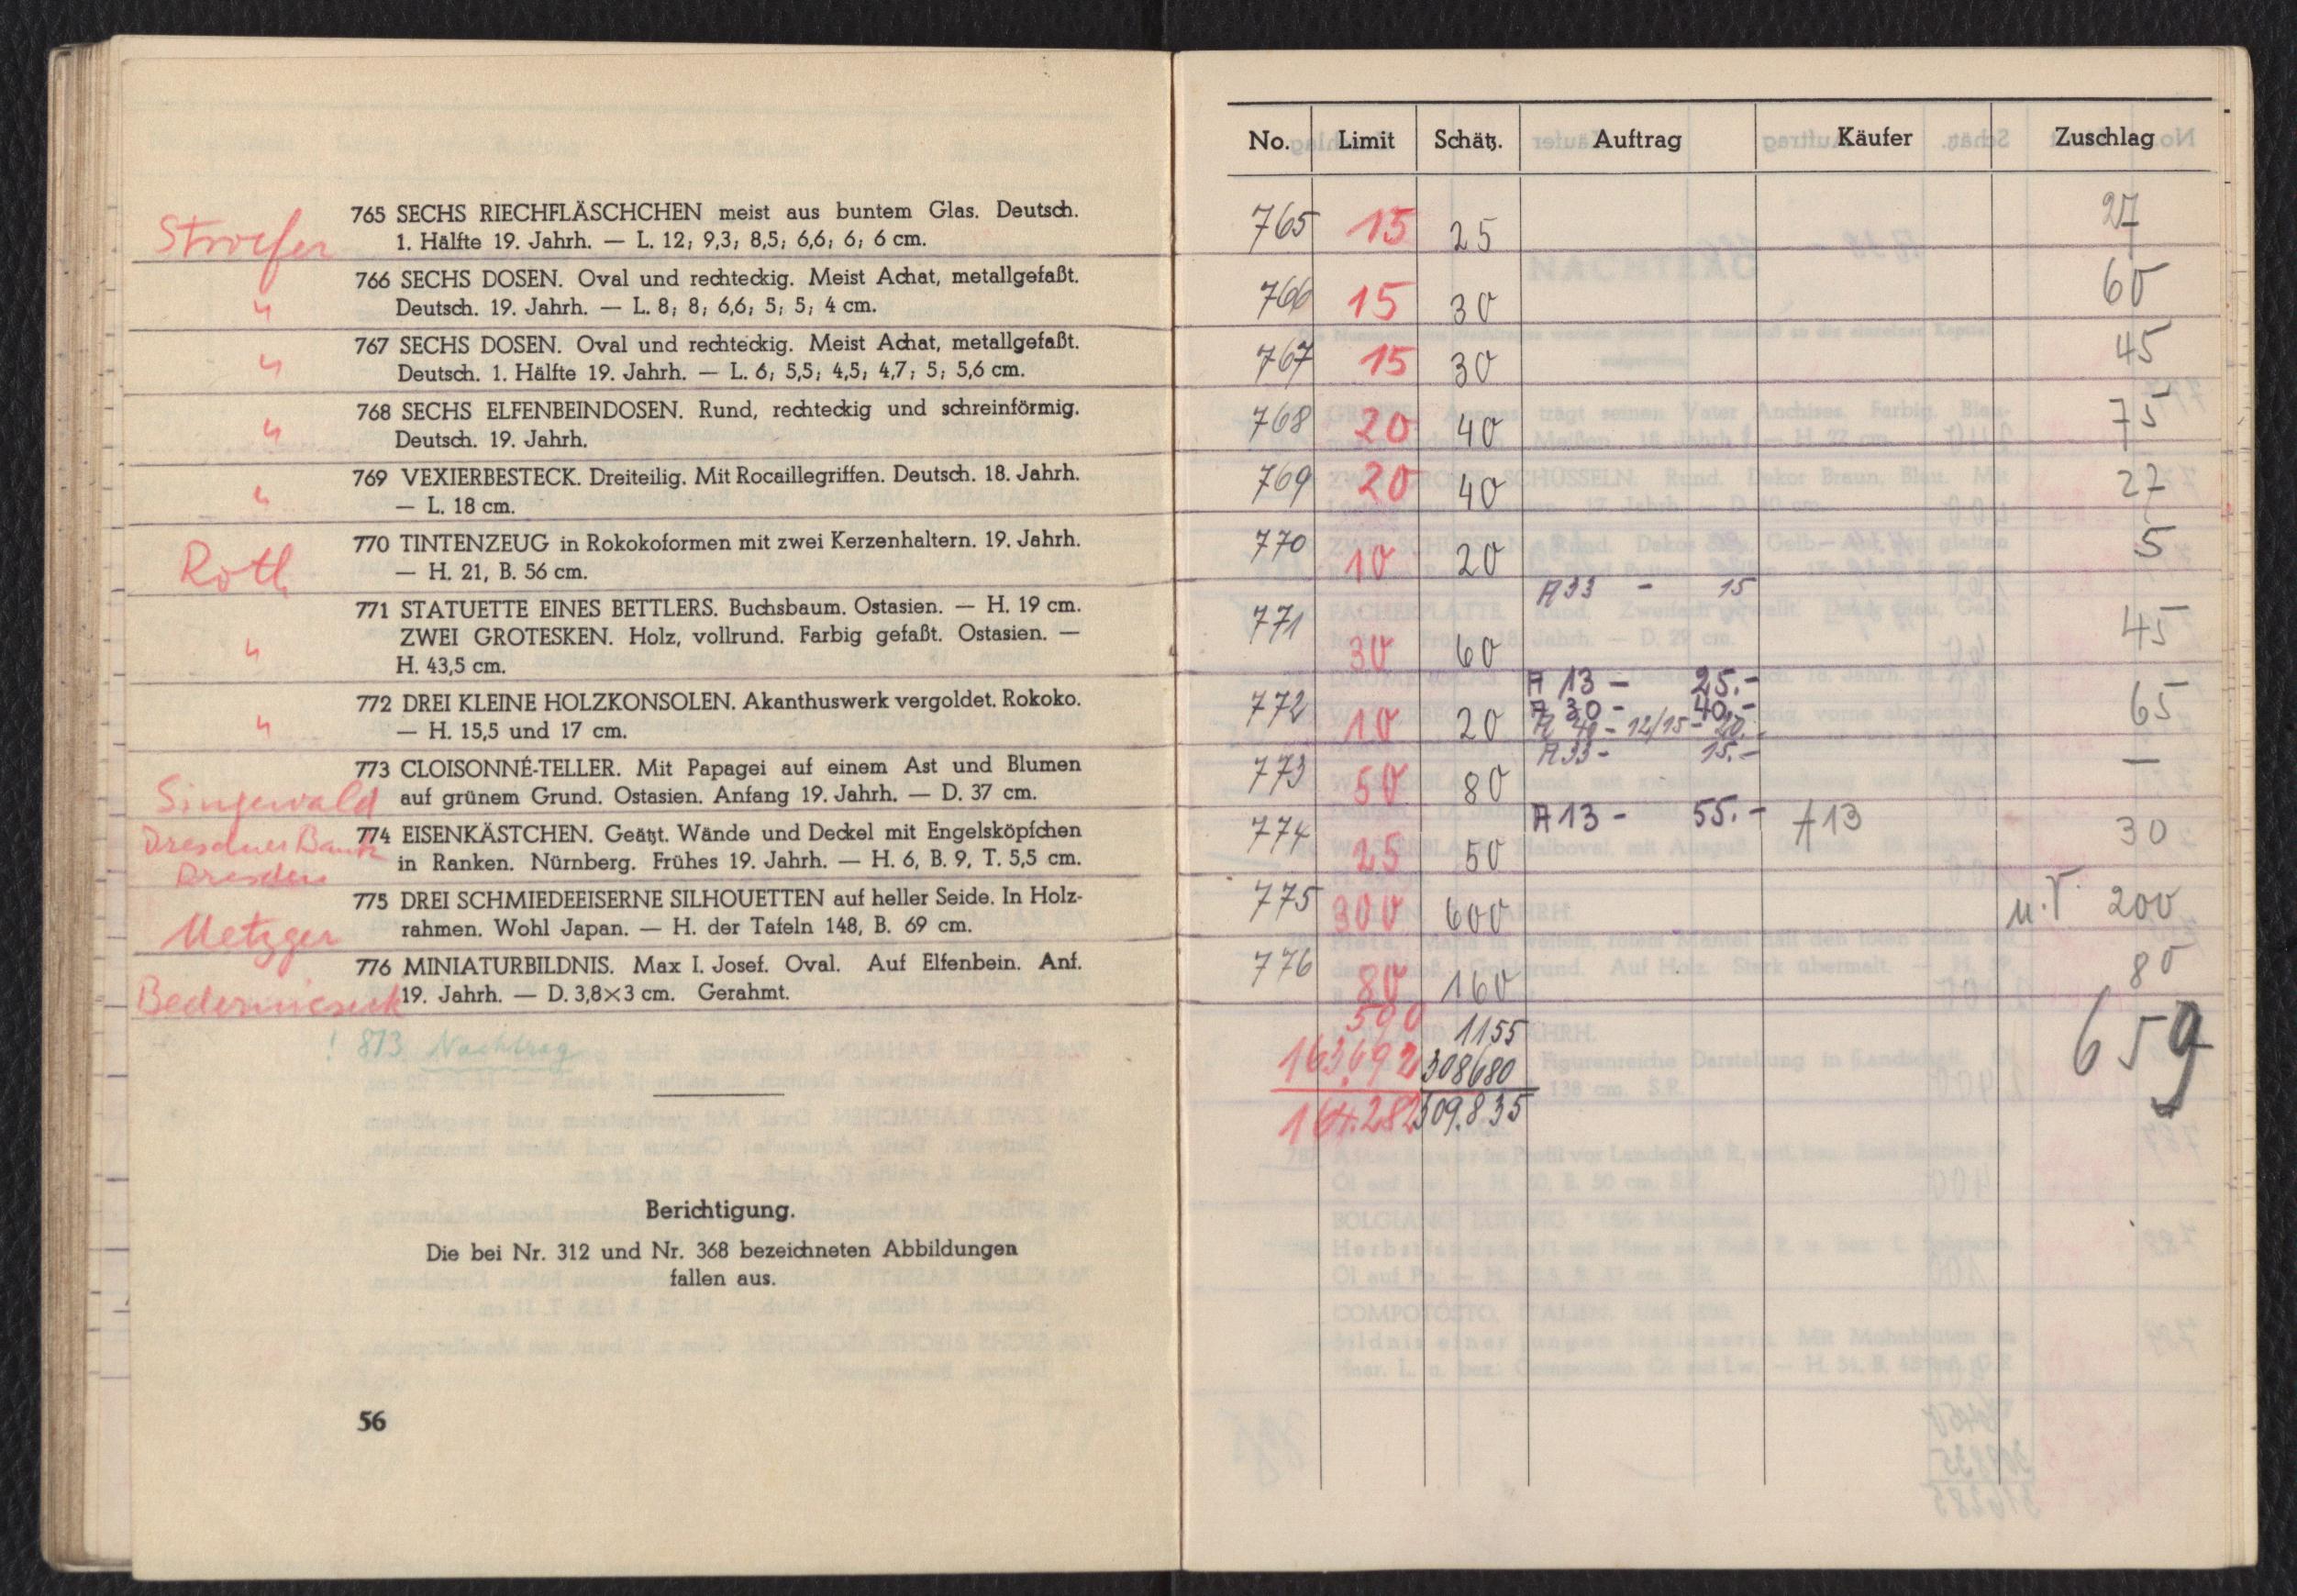 765 SECHS RIECHFLÄSCHCHEN meist aus buntem Glas. Deutsch.
Stroefer
1. Hälfte 19. Jahrh. — L. 12; 9,3; 8,5; 6,6; 6; 6 cm.
766 SECHS DOSEN. Oval und rechteckig. Meist Achat, metallgefaßt.
" Deutsch. 19. Jahrh. — L. 8; 8; 6,6; 5; 5; 4 cm.
767 SECHS DOSEN. Oval und rechteckig. Meist Achat, metallgefaßt.
" Deutsch. 1. Hälfte 19. Jahrh. — L. 6; 5,5; 4,5; 4,7; 5; 5,6 cm.
768 SECHS ELFENBEINDOSEN. Rund, rechteckig und schreinförmig.
" Deutsch. 19. Jahrh.
769 VEXIERBESTECK. Dreiteilig. Mit Rocaillegriffen. Deutsch. 18. Jahrh.
" — L. 18 cm.
770 TINTENZEUG in Rokokoformen mit zwei Kerzenhaltern. 19. Jahrh.
Roth — H. 21, B. 56 cm.
771 STATUETTE EINES BETTLERS. Buchsbaum. Ostasien. — H. 19 cm.
" ZWEI GROTESKEN. Holz, vollrund. Farbig gefaßt. Ostasien. —
H. 43,5 cm.
772 DREI KLEINE HOLZKONSOLEN. Akanthuswerk vergoldet. Rokoko.
" — H. 15,5 und 17 cm.
773 CLOISONNÉ-TELLER. Mit Papagei auf einem Ast und Blumen
Singewald auf grünem Grund. Ostasien. Anfang 19. Jahrh. — D. 37 cm.
Dresdner Bank 774 EISENKÄSTCHEN. Geätzt. Wände und Deckel mit Engelsköpfchen
Dresden in Ranken. Nürnberg. Frühes 19. Jahrh. — H. 6, B. 9, T. 5,5 cm.
775 DREI SCHMIEDEEISERNE SILHOUETTEN auf heller Seide. In Holz-
Metzger rahmen. Wohl Japan. — H. der Tafeln 148, B. 69 cm.
776 MINIATURBILDNIS. Max I. Josef. Oval. Auf Elfenbein. Anf.
19. Jahrh. — D. 3,8×3 cm. Gerahmt.
! 813 Nachtrag
Berichtigung.
Die bei Nr. 312 und Nr. 368 bezeichneten Abbildungen
fallen aus.
56
No. Limit Schätz. Auftrag Käufer Zuschlag
765 15 25 27
766 15 30 60
767 15 30 45
768 20 40 75
769 20 40 27
770 10 20 5
A33 - 15
771 30 60 45
A 13 - 25.-
772 10 20 A 30 - 40.- 65
A 40 - 12/15 - 20.
A33 - 15.-
773 50 80 —
A13 - 55.- A13
774 25 50 30
775 300 600 u.V. 200
776 80 160 80
590 1155 659
163.692 308680
164.282 309.835